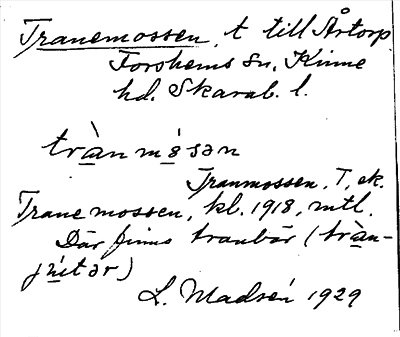 Tranemossen, t till Årtorp
Forshems sn, Kinne
hd. Skarab. l.
tràn mósən
Tranmossen, T, ek.
Trane mossen, kl. 1918, mtl.
Där finns tranbär (tràn-
L. Madsén 1929